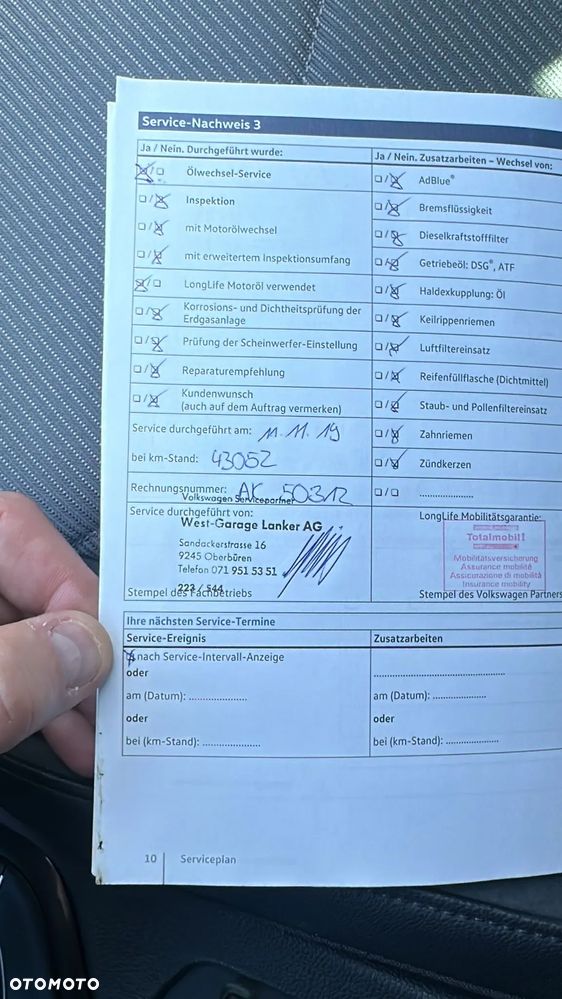 Service-Nachweis 3
Ja / Nein. Durchgeführt wurde:
Ölwechsel-Service
Inspektion
mit Motorölwechsel
mit erweitertem Inspektionsumfang
LongLife Motoröl verwendet
Korrosions- und Dichtheitsprüfung der
Erdgasanlage
Prüfung der Scheinwerfer-Einstellung
Reparaturempfehlung
Kundenwunsch
(auch auf dem Auftrag vermerken)
Service durchgeführt am: 11.11.19
bei km-Stand: 43052
Rechnungsnummer: AK 50312
Volkswagen Servicepartner
Service durchgeführt von:
West-Garage Lanker AG
Sandackerstrasse 16
9245 Oberbüren
Telefon 071 951 53 51
223 / 544
Stempel des Fachbetriebs
Ja / Nein. Zusatzarbeiten – Wechsel von:
AdBlue®
Bremsflüssigkeit
Dieselkraftstofffilter
Getriebeöl: DSG®, ATF
Haldexkupplung: Öl
Keilrippenriemen
Luftfiltereinsatz
Reifenfüllflasche (Dichtmittel)
Staub- und Pollenfiltereinsatz
Zahnriemen
Zündkerzen
....................
LongLife Mobilitätsgarantie:
Totalmobil!
Mobilitätsversicherung
Assurance mobilité
Assicurazione di mobilità
Insurance mobility
Stempel des Volkswagen Partners
Ihre nächsten Service-Termine
Service-Ereignis
nach Service-Intervall-Anzeige
oder
am (Datum): ....................
oder
bei (km-Stand): ....................
Zusatzarbeiten
..................................................
am (Datum): ....................
oder
bei (km-Stand): ....................
10 Serviceplan
OTOMOTO